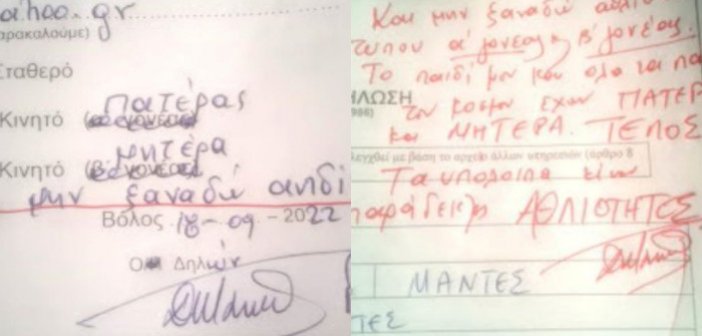 αhoo.gr
αρακαλούμε)
Σταθερό
Πατέρας
Κινητό
μητέρα
Κινητό
μην ξαναδώ
Βόλος 18-09-2022
Δηλών
Και μην ξαναδώ
τύπου α' γονέας β' γονέας.
Το παιδί μου και όλα τα πα
ΗΛΩΣΗ
του κόσμου έχουν ΠΑΤΕΡ
και ΜΗΤΕΡΑ. ΤΕΛΟΣ
λεγχθεί με βάση το αρχείο άλλων υπηρεσιών (άρθρο 8
Τα υπόλοιπα είναι
παράδειξη ΑΘΛΙΟΤΗΤΟΣ
ΜΑΝΤΕΣ
ΤΕΣ